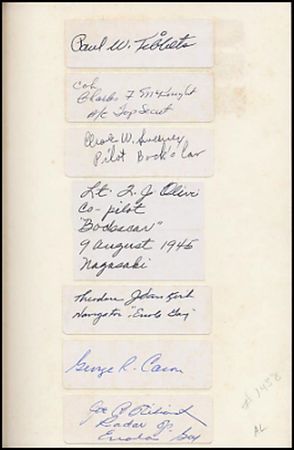 Paul W. Tibbets
Col.
Charles F McKnight
A/C Top Secret
Chas W. Sweeney
Pilot Bock's Car
Lt. F. J. Olivi
Co-pilot
"Bockscar"
9 August 1945
Nagasaki
Theodore J Van Kirk
Navigator "Enola Gay"
George R. Caron
Joe A Stiborik
Radar Op.
Enola Gay
AL